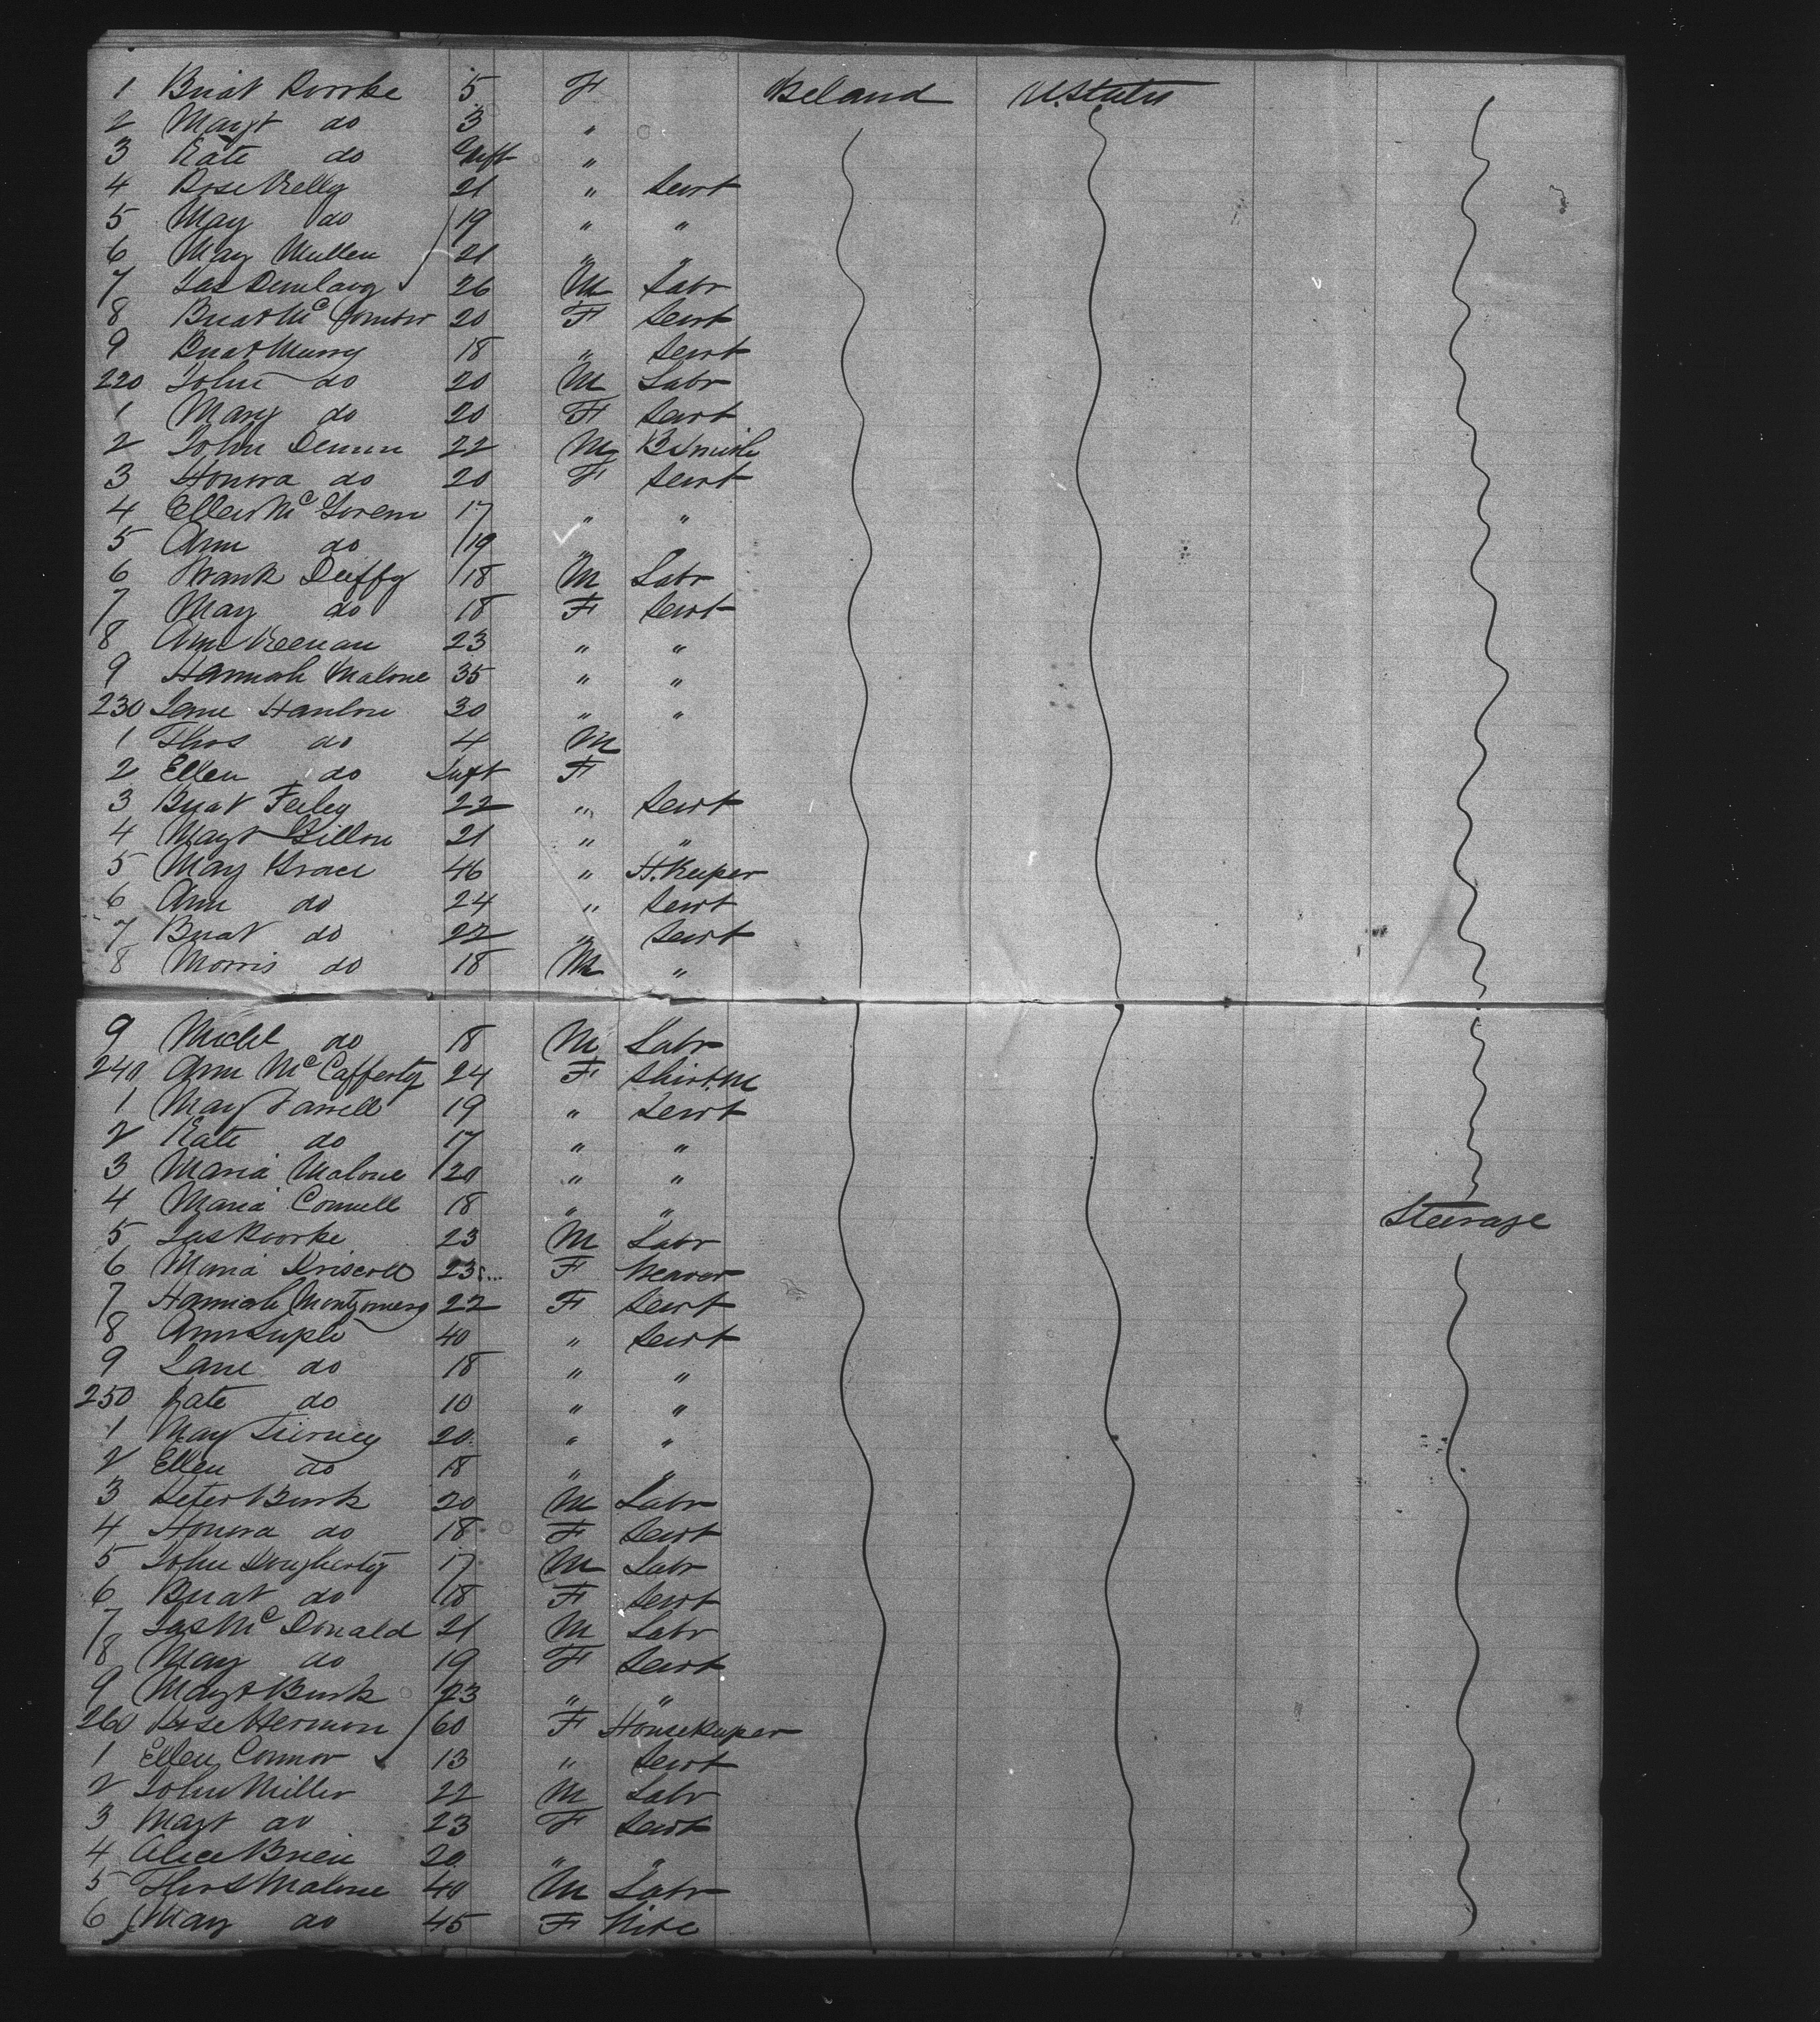 1 Bridt Rorke 5 F Ireland U States
2 Margt do 3 "
3 Kate do Inft "
4 Rose Kelly 21 " Servt
5 Mary do 19 " "
6 Mary Mullen 21 " "
7 Jas 26 M Labr
8 Bridt McConnor 20 F Servt
9 Bridt Murry 18 " Servt
220 John do 20 M Labr
1 Mary do 20 F Servt
2 John 22 M BSmith
3 Honora do 20 F Servt
4 Ellen McGovern 17 " "
5 Ann do 19 "
6 Frank Duffy 18 M Labr
7 Mary do 18 F Servt
8 Ann Keenan 23 " "
9 Hannah Malone 35 " "
230 Jane Hanlon 30 " "
1 Thos do 4 M
2 Ellen do Inft F
3 Bridt 22 " Servt
4 Margt Gillon 21 " "
5 Mary Grace 46 " H.Keeper
6 Ann do 24 " Servt
7 Bridt do 22 " Servt
8 Morris do 18 M "
9 Michl do 18 M Labr
240 Ann McCafferty 24 F Shirt.M
1 Mary Farrell 19 " Servt
2 Kate do 17 " "
3 Maria Malone 20 " "
4 Maria Connell 18 " " Steerage
5 Jas Rorke 23 M Labr
6 Maria Driscoll 23 F Weaver
7 Hannah Montgomery 22 F Servt
8 Ann Suple 40 " Servt
9 Jane do 18 " "
250 Kate do 10 " "
1 Mary Tierney 20 " "
2 Ellen do 18 " "
3 Peter Burk 20 M Labr
4 Honora do 18 F Servt
5 John Dougherty 17 M Labr
6 Bridt do 18 F Servt
7 Jas McDonald 21 M Labr
8 Mary do 19 F Servt
9 Margt Burk 23 " "
260 Rose Hermon 60 F Housekeeper
1 Ellen Connor 13 " Servt
2 John Miller 22 M Labr
3 Margt do 23 F Servt
4 Alice Brien 20 " "
5 Thos Malone 40 M Labr
6 Mary do 45 F Wife